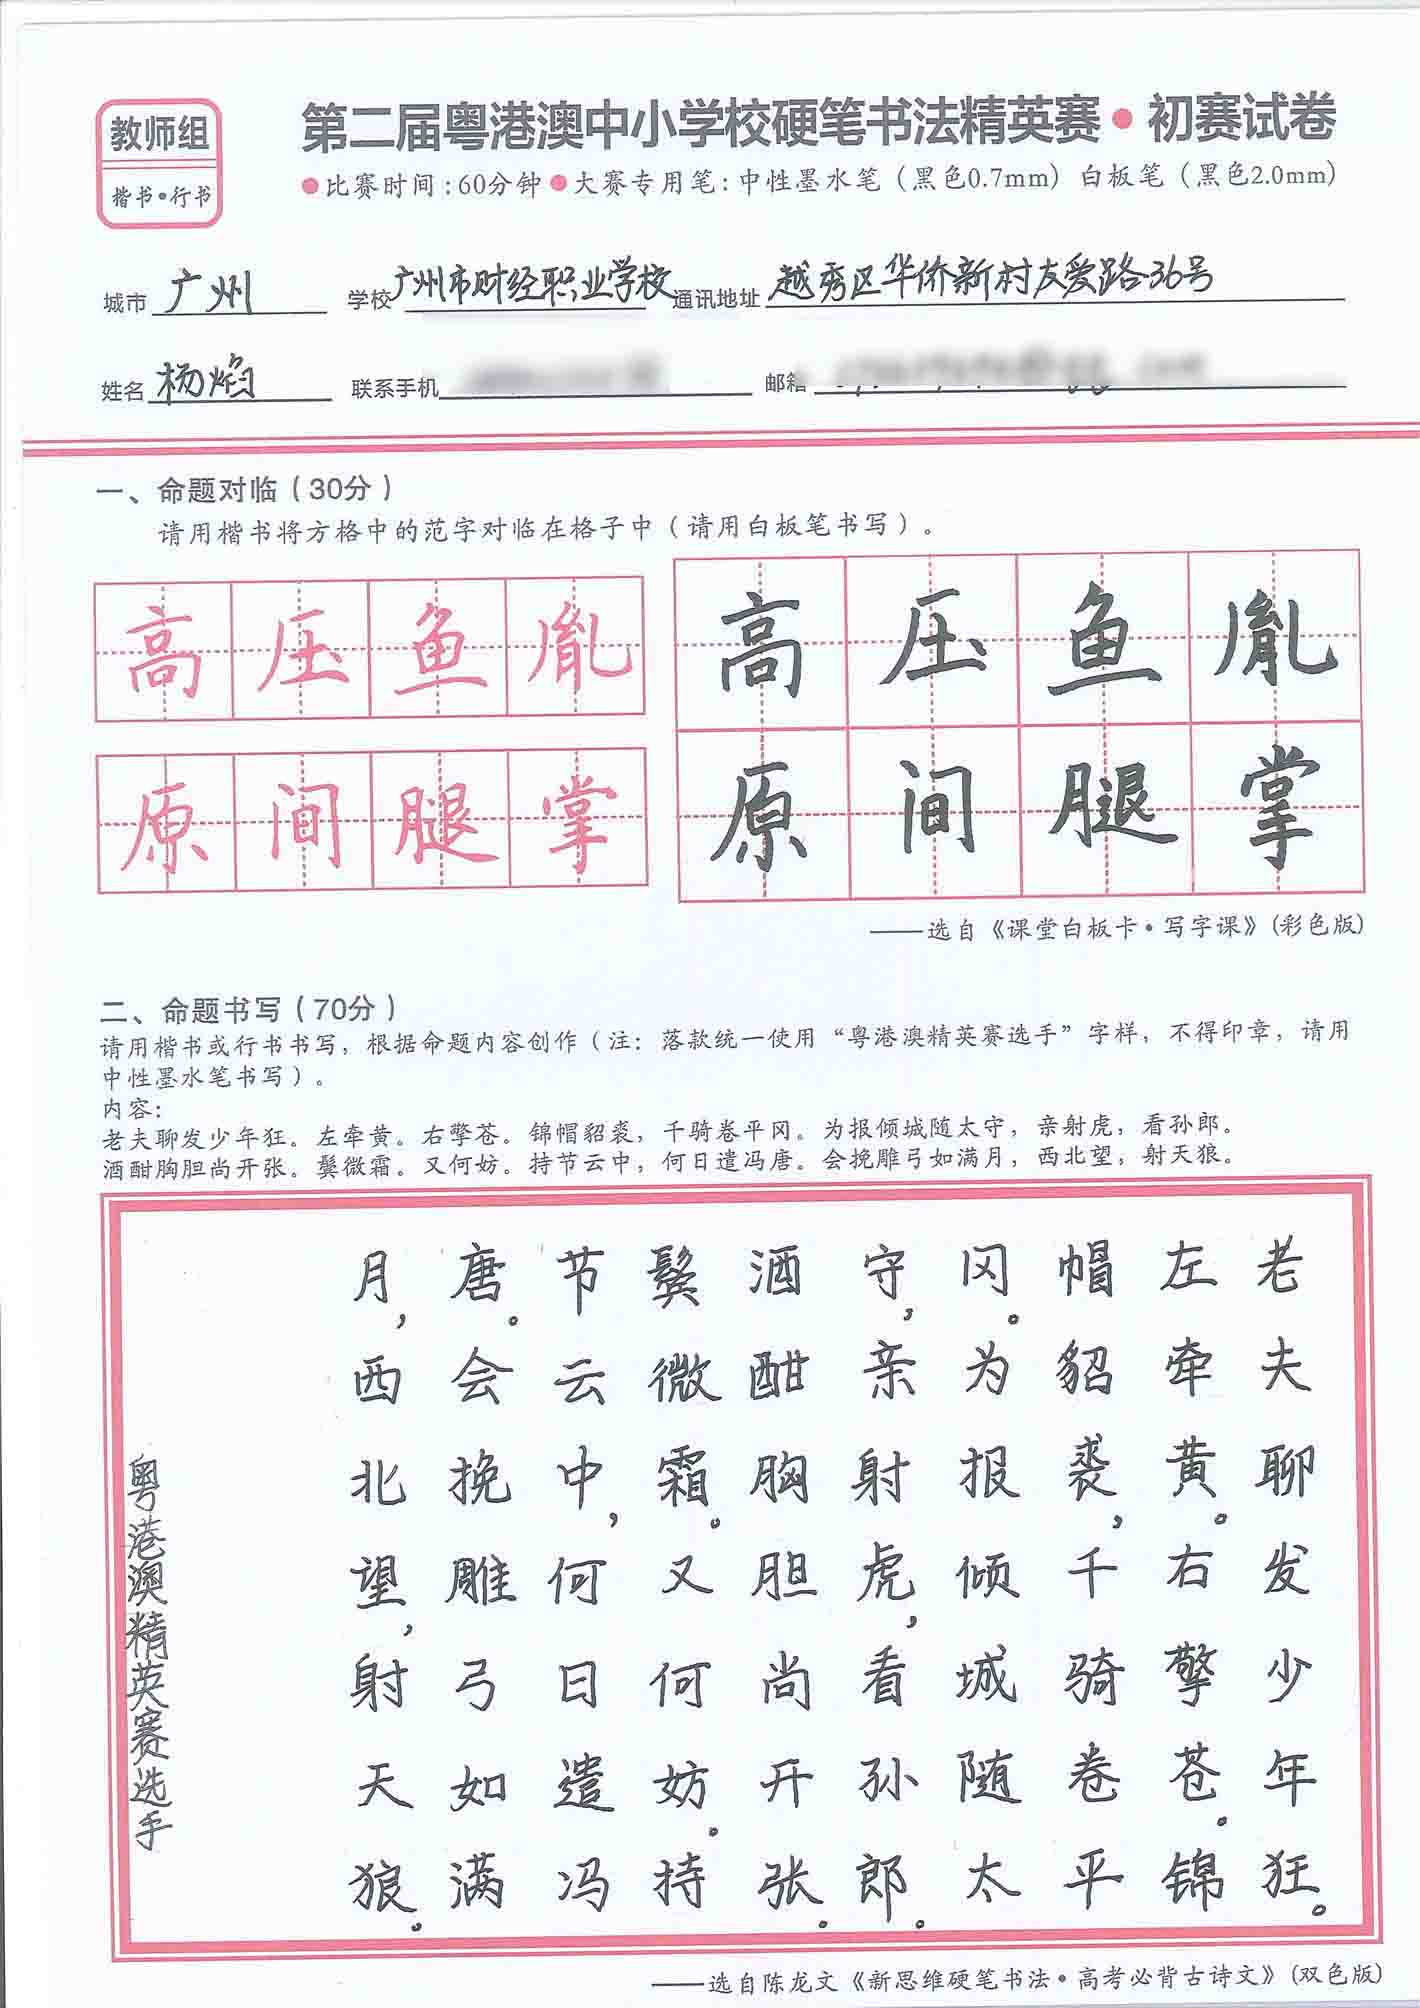 教师组
楷书·行书
第二届粤港澳中小学校硬笔书法精英赛·初赛试卷
●比赛时间:60分钟●大赛专用笔:中性墨水笔（黑色0.7mm）白板笔（黑色2.0mm）
城市 广州 学校 广州市财经职业学校 通讯地址 越秀区华侨新村友爱路36号
姓名 杨焰 联系手机 邮箱
一、命题对临（30分）
请用楷书将方格中的范字对临在格子中（请用白板笔书写）。
高压鱼胤
原间腿掌
高压鱼胤
原间腿掌
——选自《课堂白板卡·写字课》(彩色版)
二、命题书写（70分）
请用楷书或行书书写，根据命题内容创作（注：落款统一使用“粤港澳精英赛选手”字样，不得印章，请用
中性墨水笔书写）。
内容：
老夫聊发少年狂。左牵黄。右擎苍。锦帽貂裘，千骑卷平冈。为报倾城随太守，亲射虎，看孙郎。
酒酣胸胆尚开张。鬓微霜。又何妨。持节云中，何日遣冯唐。会挽雕弓如满月，西北望，射天狼。
老夫聊发少年狂。
左牵黄。右擎苍。锦
帽貂裘，千骑卷平
冈。为报倾城随太
守，亲射虎，看孙郎。
酒酣胸胆尚开张。
鬓微霜。又何妨。持
节云中，何日遣冯
唐。会挽雕弓如满
月，西北望，射天狼。
粤港澳精英赛选手
——选自陈龙文《新思维硬笔书法·高考必背古诗文》(双色版)